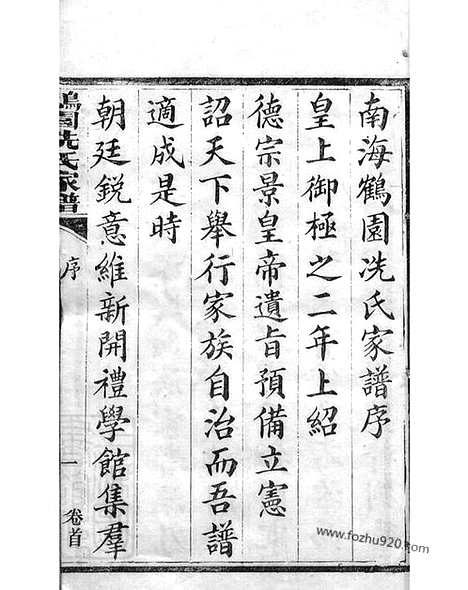 南海鶴園冼氏家譜序
皇上御極之二年上紹
德宗景皇帝遺旨預備立憲
詔天下舉行家族自治而吾譜
適成是時
朝廷銳意維新開禮學館集羣
鶴園冼氏家譜
序
一
卷首
www.fozhu920.com